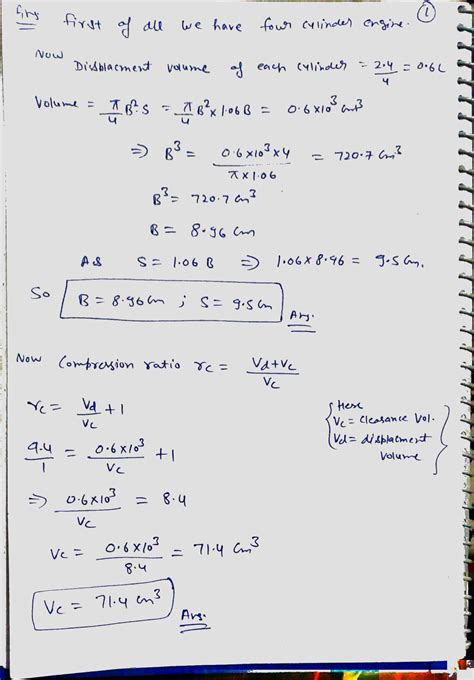 ①
First of all we have four cylinder engine.
Now
Disblacment volume of each cylinder = 2.4/4 = 0.6L
Volume = π/4 B² S = π/4 B² × 1.06B = 0.6×10³ cm³
⇒ B³ = 0.6×10³×4 / π×1.06 = 720.7 cm³
B³ = 720.7 cm³
B = 8.96 cm
AS S = 1.06 B ⇒ 1.06×8.96 = 9.5 cm.
So B = 8.96 cm ; S = 9.5 cm Ans.
Now Compression ratio rc = Vd+Vc / Vc
rc = Vd/Vc + 1
{ Here
Vc = Clearance Vol.
Vd = disblacment
Volume }
9.4/1 = 0.6×10³/Vc + 1
⇒ 0.6×10³/Vc = 8.4
Vc = 0.6×10³/8.4 = 71.4 cm³
Vc = 71.4 cm³ Ans.